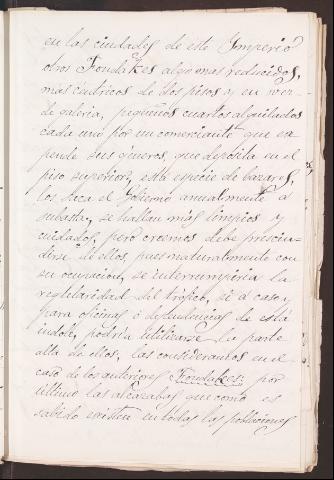 en las ciudades de este Imperio
otros Fondakes algo mas reducidos,
mas centricos de dos pisos y en vez
de galeria, pequeños cuartos alquilados
cada uno por un comerciante que ex-
pende sus géneros, que deposita en el
piso superior, esta especie de bazares,
los saca el Gobierno anualmente á
subasta, se hallan más limpios y
cuidados, pero creemos debe prescin-
dirse de ellos pues naturalmente con
su ocupacion, se interrumpiria la
regularidad del tráfico, si á caso y
para oficinas ó dependencias de esta
indole, podria utilizarse la parte
alta de ellos, las consideramos en el
caso de los anteriores Fondakes: por
último las alcazabas que como es
sabido existen en todas las poblaciones